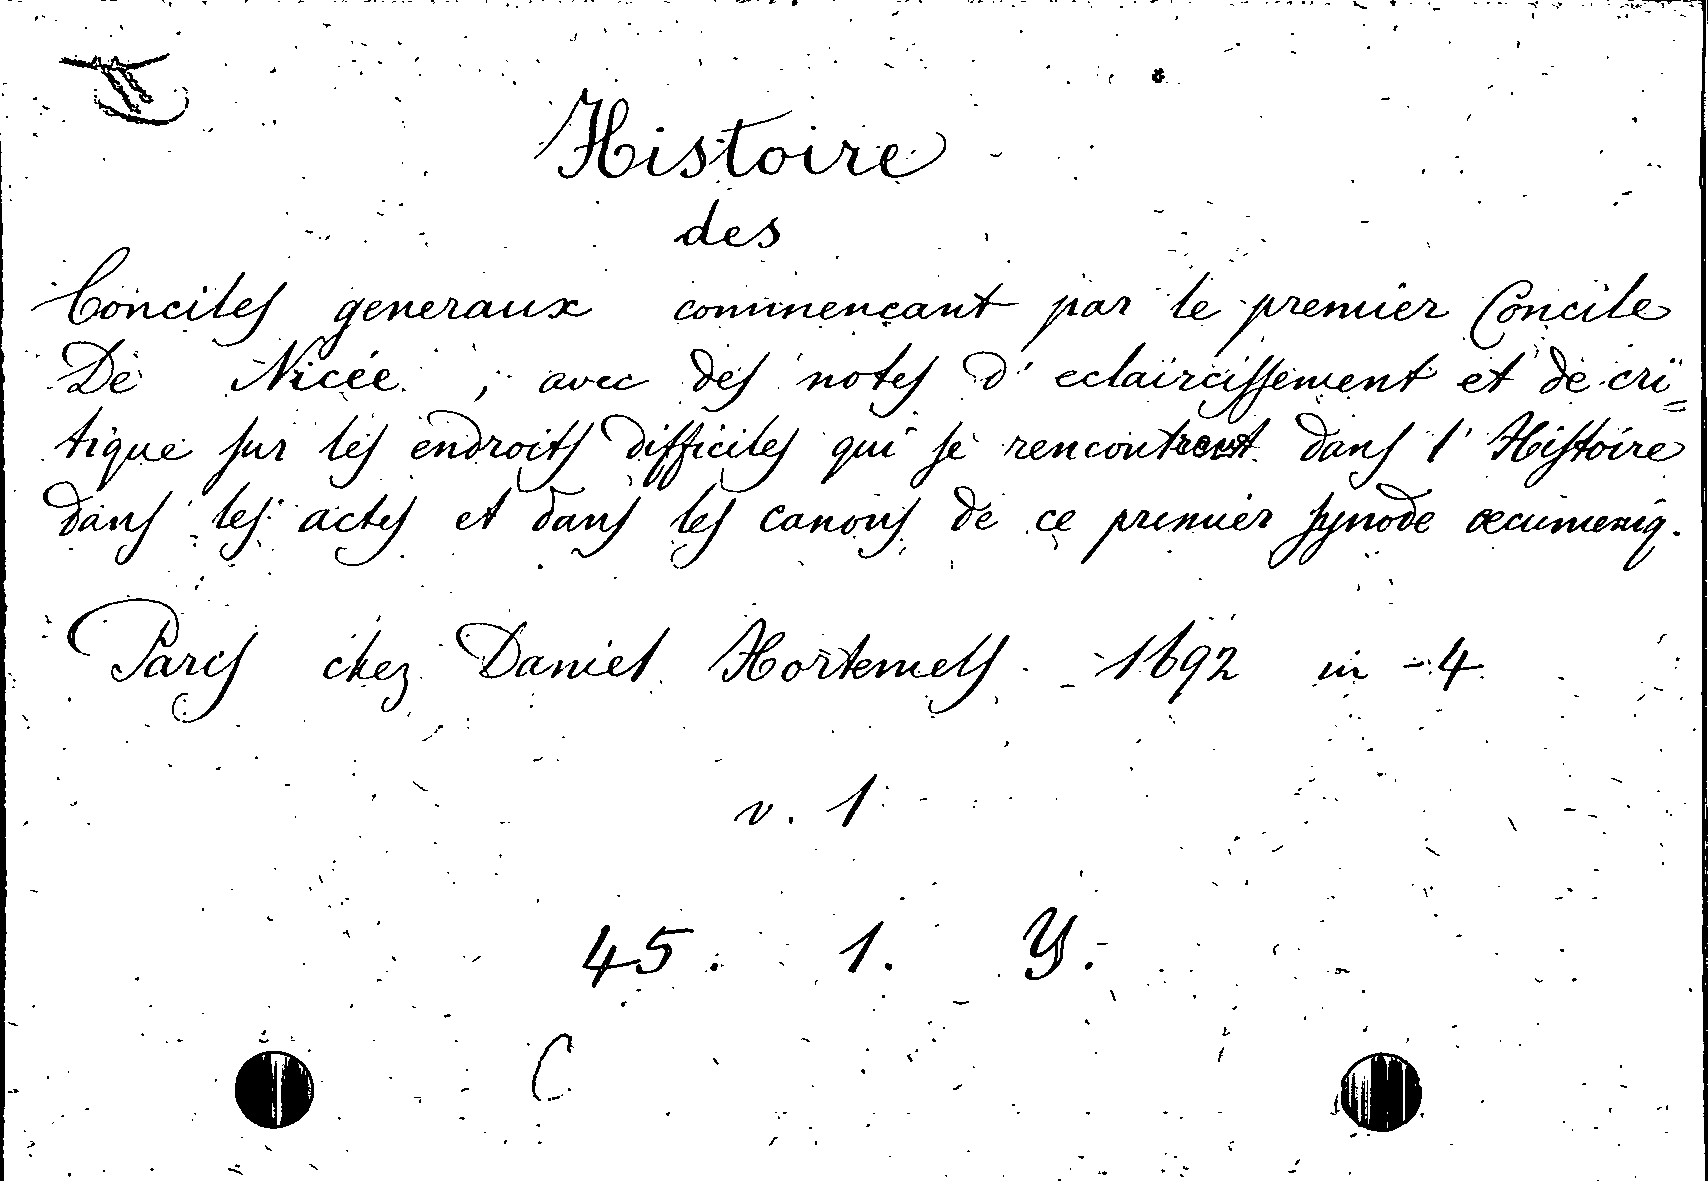 Histoire
des
Conciles generaux commençant par le premier Concile
De Nicée, avec des notes d'eclaircissement et de cri=
tique sur les endroits difficiles qui se rencontrent dans l'Histoire
dans les actes et dans les canons de ce premier synode œcumeniq.
Paris chez Daniel Hortemels 1692 in-4
v. 1
45. 1. Y.
C